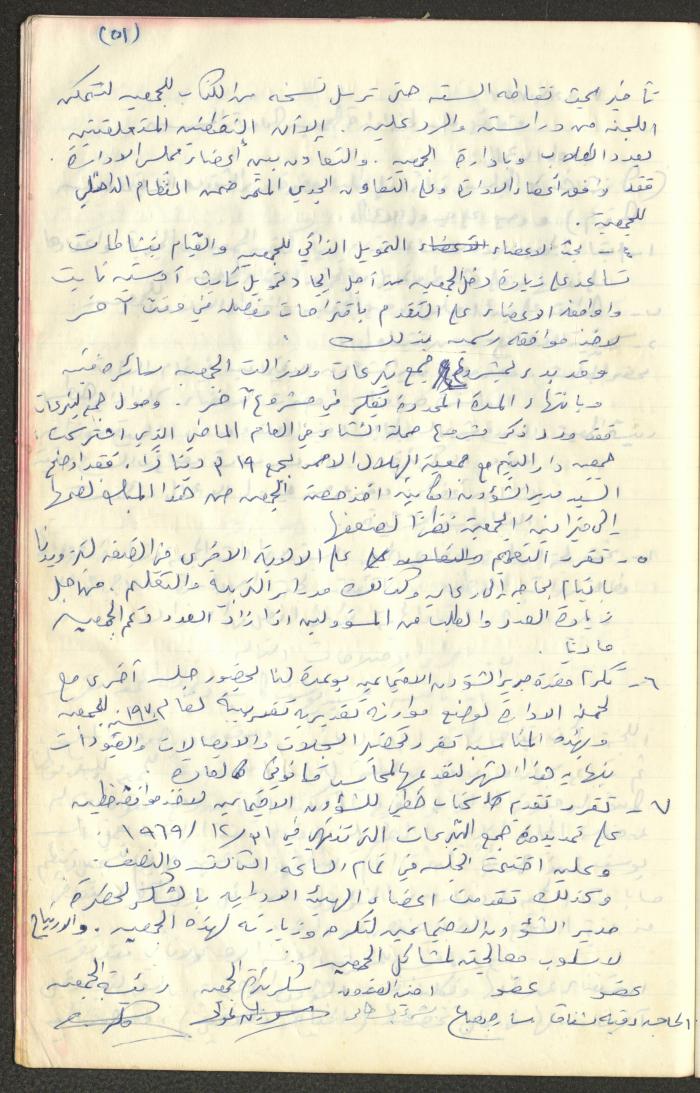 (٥١)
تأخير بحث نقاطه الستة حتى ترسل نسخه من الكتاب للجمعيه لتتمكن
اللجنه من دراسته والرد عليه . إلا أن النقطتين المتعلقتين
بعدد الطلاب وبادارة الجمعيه . والتعاون بين أعضاء مجلس الادارة
فقد وافق أعضاء الادارة على التعاون الجدي المثمر ضمن النظام الداخلي
للجمعية .
٤- بحث الاعضاء التمويل الذاتي للجمعيه والقيام بنشاطات
تساعد على زيادة دخل الجمعيه من أجل ايجاد تمويل ثابت
وافقه الاعضاء على التقدم باقتراحات مفصله في وقت آخر
لاخذ موافقه رسميه بذلك .
وقد بدء بمشروع جمع تبرعات ولا زالت الجمعيه سائره فيه
وبانتهاء المدة المحدودة تفكر في مشروع آخر . وحول جمع التبرعات
فقد ورد ذكر مشروع حملة الشتاء في العام الماضي الذي اشتركت
جمعيه دار اليتيم مع جمعية الهلال الاحمر بجمع ٣١٩ دينارًا . فقد أوضح
السيد مدير الشؤون امكانية اخذ حصة الجمعيه من هذا المبلغ لضمها
إلى ميزانية الجمعية نظرًا لضعفها
٥- تقرر التعميم على الالوية الاخرى من الضفه لتزويدنا
بايتام بحاجه إلى رعايه وكذلك مدراء التربية والتعليم . من اجل
زيادة العدد والطلب من المسؤولين اذا زاد العدد دعم الجمعيه
ماديًا .
٦- تكرم حضرة مدير الشؤون الاجتماعيه بوعده لنا بحضور جلسه أخرى مع
لجنة الادارة لوضع موازنه تقديريه تقريبية لعام ١٩٧٠ للجمعيه
وبهذه المناسبه تقرر تحضير السجلات والايصالات والقيودات
بنهاية هذا الشهر لتقدمها لمحاسب قانوني
٧- تقرر تقديم كتاب خطي للشؤون الاجتماعيه لاخذ موافقه خطيه
على تمديد مدة جمع التبرعات التي تنتهي في ٣١ /١٢ /١٩٦٩
وعليه اختتمت الجلسه في تمام الساعه الثالثه والنصف .
وكذلك تقدمت اعضاء الهيئة الادارية بالشكر لحضرة
مدير الشؤون الاجتماعيه لتكرمه وزيارته لهذه الجمعيه . والارتياح
لاسلوب معالجته لمشاكل الجمعيه
عضو عضو امينة الصندوق سكرتيرة الجمعيه رئيسة الجمعيه
الحاجه رقيه